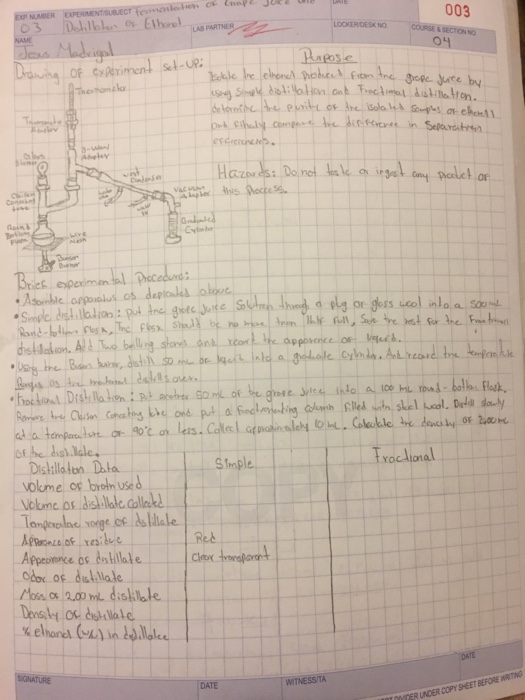 EXP NUMBER EXPERIMENT/SUBJECT fermentation of Grape Juice and DATE
003
03 Distillation of Ethanol
LAB PARTNER LOCKER/DESK NO. COURSE & SECTION NO.
04
NAME
Madrigal
Drawing of experiment set-up:
Purpose
Isolate the ethanol produced from the grape juice by
using simple distillation and Fractional distillation.
determine the purity of the isolated samples of ethanol
and finally compare the difference in Separation
efficiencies.
Thermometer
Thermometer
Adapter
3-way
Adapter
Claisen
Connecting
tube
West
Condenser
Vacuum
Adapter
Graduated
Cylinder
Round
Bottom
Flask
Wire
Mesh
Bunsen
Burner
Hazards: Do not taste or ingest any product of
this process.
Brief experimental Procedure:
• Assemble apparatus as depicted above
• Simple distillation: put the grape Juice Solution through a plug of glass wool into a 500mL
Round-bottom Flask, The Flask should be no more than Half full, Save the rest for the Fractional
distillation. Add Two boiling stones and record the apperence of liquid.
• Using the Bunsen burner, distill 50 mL of liquid into a graduate cylinder. And record the temperature
Ranges as the material distills over.
• Fractional Distillation: put another 50 mL of the grape juice into a 100 mL round-bottom Flask.
Remove the Claisen Conecting tube and put a fractionating column filled with steel wool. Distill slowly
at a temperature of 90°C or less. Collect approximately 10 mL. Calculate the density of 2.00mL
of the distillate.
Distillation Data Simple Fractional
Volume of broth used
Volume of distillate collected
Temperature range of distillate
Apperence of residue Red
Appearence of distillate Clear transparent
Odor of distillate
Mass of 2.00 mL distillate
Density of distillate
% ethanol in distillate
SIGNATURE DATE WITNESS/TA DATE
UNDER COPY SHEET BEFORE WRITING